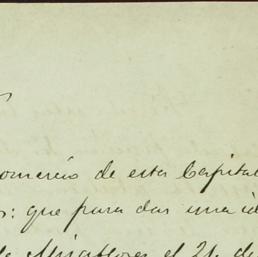 omercio de esta Capital
s: que para dar una id
de Miraflores el 21 de